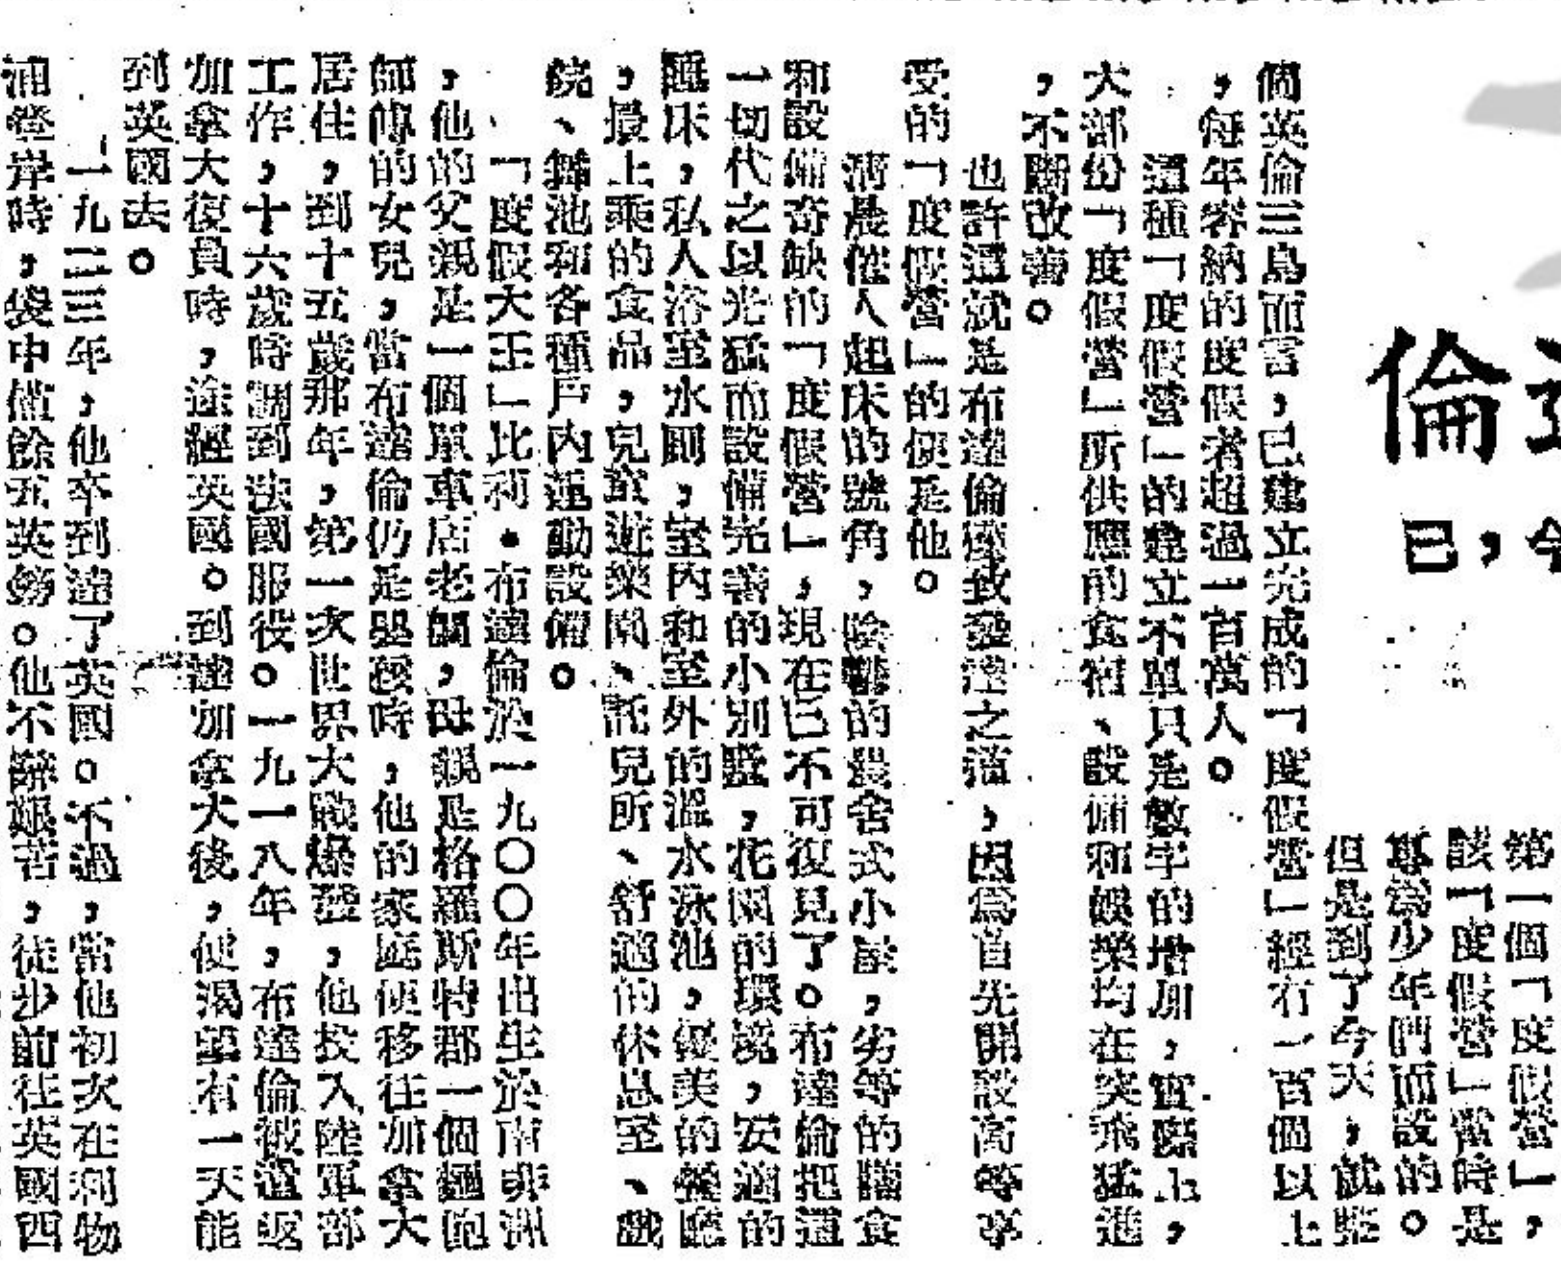 倫
已，令
第一個「度假營」，
該「度假營」當時是
專為少年們而設的。
但是到了今天，就整
個英倫三島而言，已建立完成的「度假營」經有一百個以上
，每年容納的度假者超過一百萬人。
這種「度假營」的建立不單只是數字的增加，實際上，
大部份「度假營」所供應的食宿、設備和娛樂均在突飛猛進
，不斷改善。
也許這就是布達倫致發達之道，因為首先開設高等享
受的「度假營」的便是他。
清晨催人起床的號角，陰鬱的農舍式小，劣等的膳食
和設備奇缺的「度假營」，現在已不可復見了。布達倫把這
一切代之以光猛而設備完善的小別墅，花園的環境，安適的
睡床，私人浴室水廁，室內和室外的溫水泳池，優美的餐廳
，最上乘的食品，兒童遊樂園、託兒所、舒適的休息室、戲
院、舞池和各種戶內運動設備。
「度假大王」比利·布達倫於一九〇〇年出生於南非洲
，他的父親是一個單車店老闆，母親是格羅斯特郡一個麵飽
師傅的女兒，當布達倫仍是嬰孩時，他的家庭便移往加拿大
居住，到十五歲那年，第一次世界大戰爆發，他投入陸軍部
工作，十六歲時調到法國服役。一九一八年，布達倫被遣返
加拿大復員時，途經英國。到達加拿大後，便渴望有一天能
到英國去。
一九二三年，他卒到達了英國。不過，當他初次在利物
浦登岸時，袋中僅餘五英鎊。他不辭艱苦，徒步前往英國西